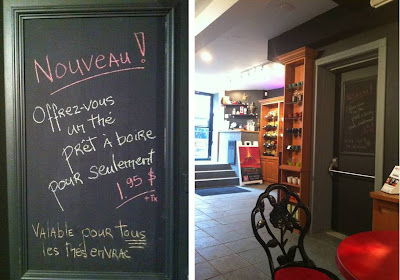 Nouveau!
Offrez-vous
un thé
prêt à boire
pour seulement
1.95 $
+Tx
VALABLE POUR TOUS
les thés en VRAC